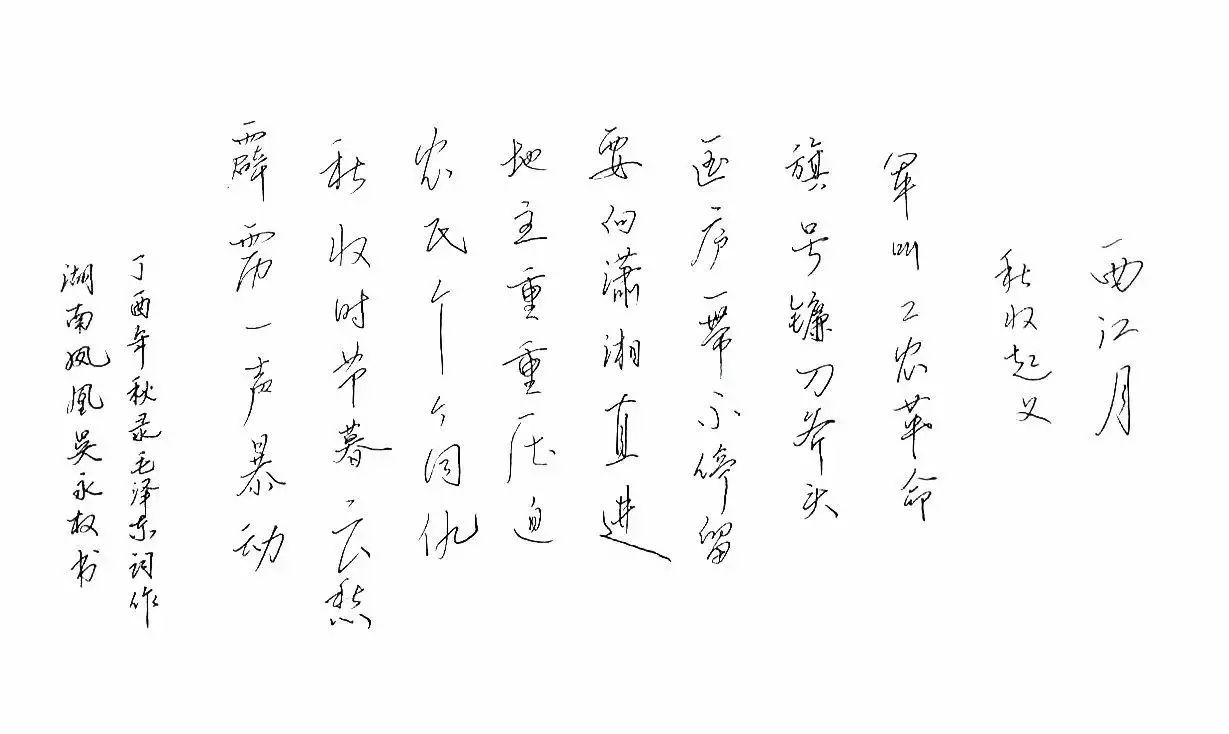 西江月
秋收起义
军叫工农革命
旗号镰刀斧头
匡庐一带不停留
要向潇湘直进
地主重重压迫
农民个个同仇
秋收时节暮云愁
霹雳一声暴动
丁酉年秋录毛泽东词作
湖南凤凰吴永权书